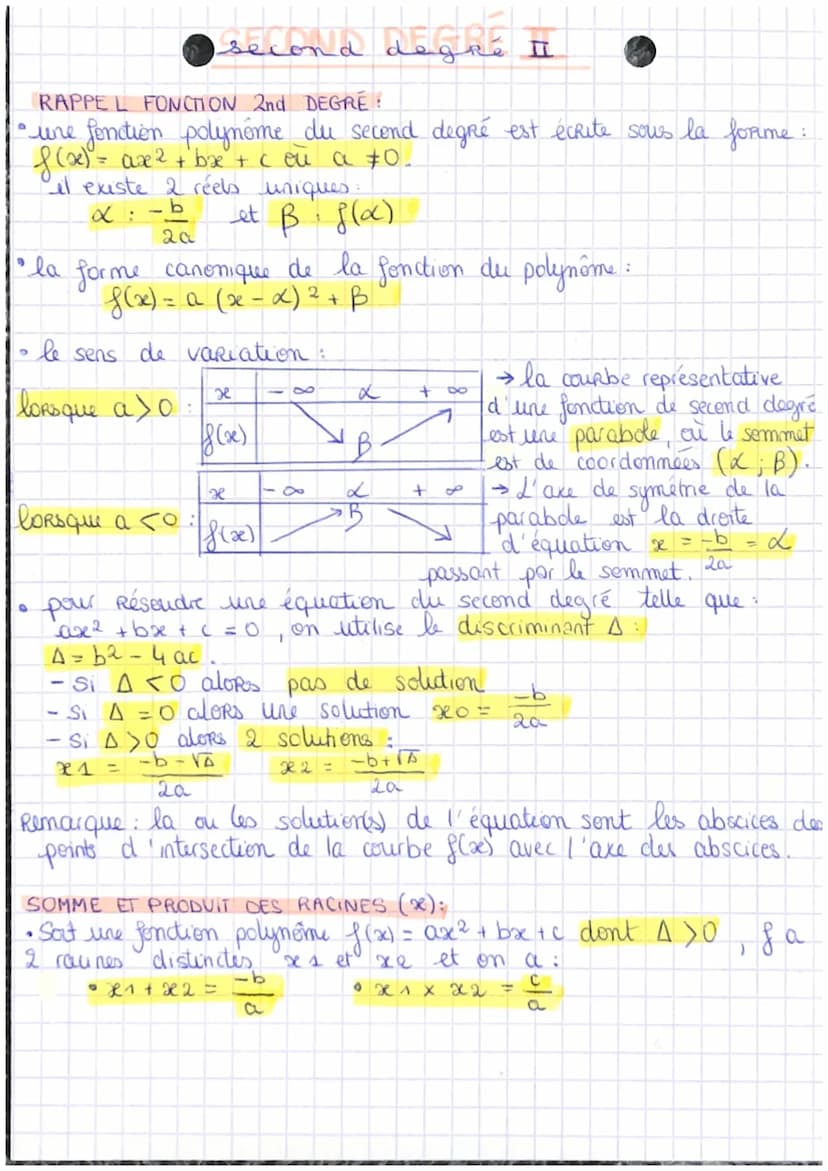 SECOND DEGRÉ II
second degré II
RAPPEL FONCTION 2nd DEGRÉ :
• une fonction polynôme du second degré est écrite sous la forme :
f(x) = ax2 + bx + c où a ≠ 0.
il existe 2 réels uniques :
α : -b/2a et β : f(α)
• la forme canonique de la fonction du polynôme :
f(x) = a (x - α)2 + β
• le sens de variation :
lorsque a > 0 :
x - ∞ α + ∞
f(x) ↘ β ↗
→ la courbe représentative
d'une fonction de second degré
est une parabole, où le sommet
est de coordonnées (α ; β).
lorsque a < 0 :
x - ∞ α + ∞
f(x) ↗ β ↘
→ L'axe de symétrie de la
parabole est la droite
d'équation x = -b/2a = α
passant par le sommet.
• pour résoudre une équation du second degré telle que :
ax2 + bx + c = 0, on utilise le discriminant Δ :
Δ = b2 - 4 ac.
- Si Δ < 0 alors pas de solution
- Si Δ = 0 alors une solution x0 = -b/2a
- Si Δ > 0 alors 2 solutions :
x1 = -b - √Δ/2a x2 = -b + √Δ/2a
Remarque : la ou les solution(s) de l'équation sont les abscices des
points d'intersection de la courbe f(x) avec l'axe des abscices.
SOMME ET PRODUIT DES RACINES (x) :
• Soit une fonction polynôme f(x) = ax2 + bx + c dont Δ > 0, f a
2 racines distinctes x1 et x2 et on a :
• x1 + x2 = -b/a • x1 x x2 = c/a